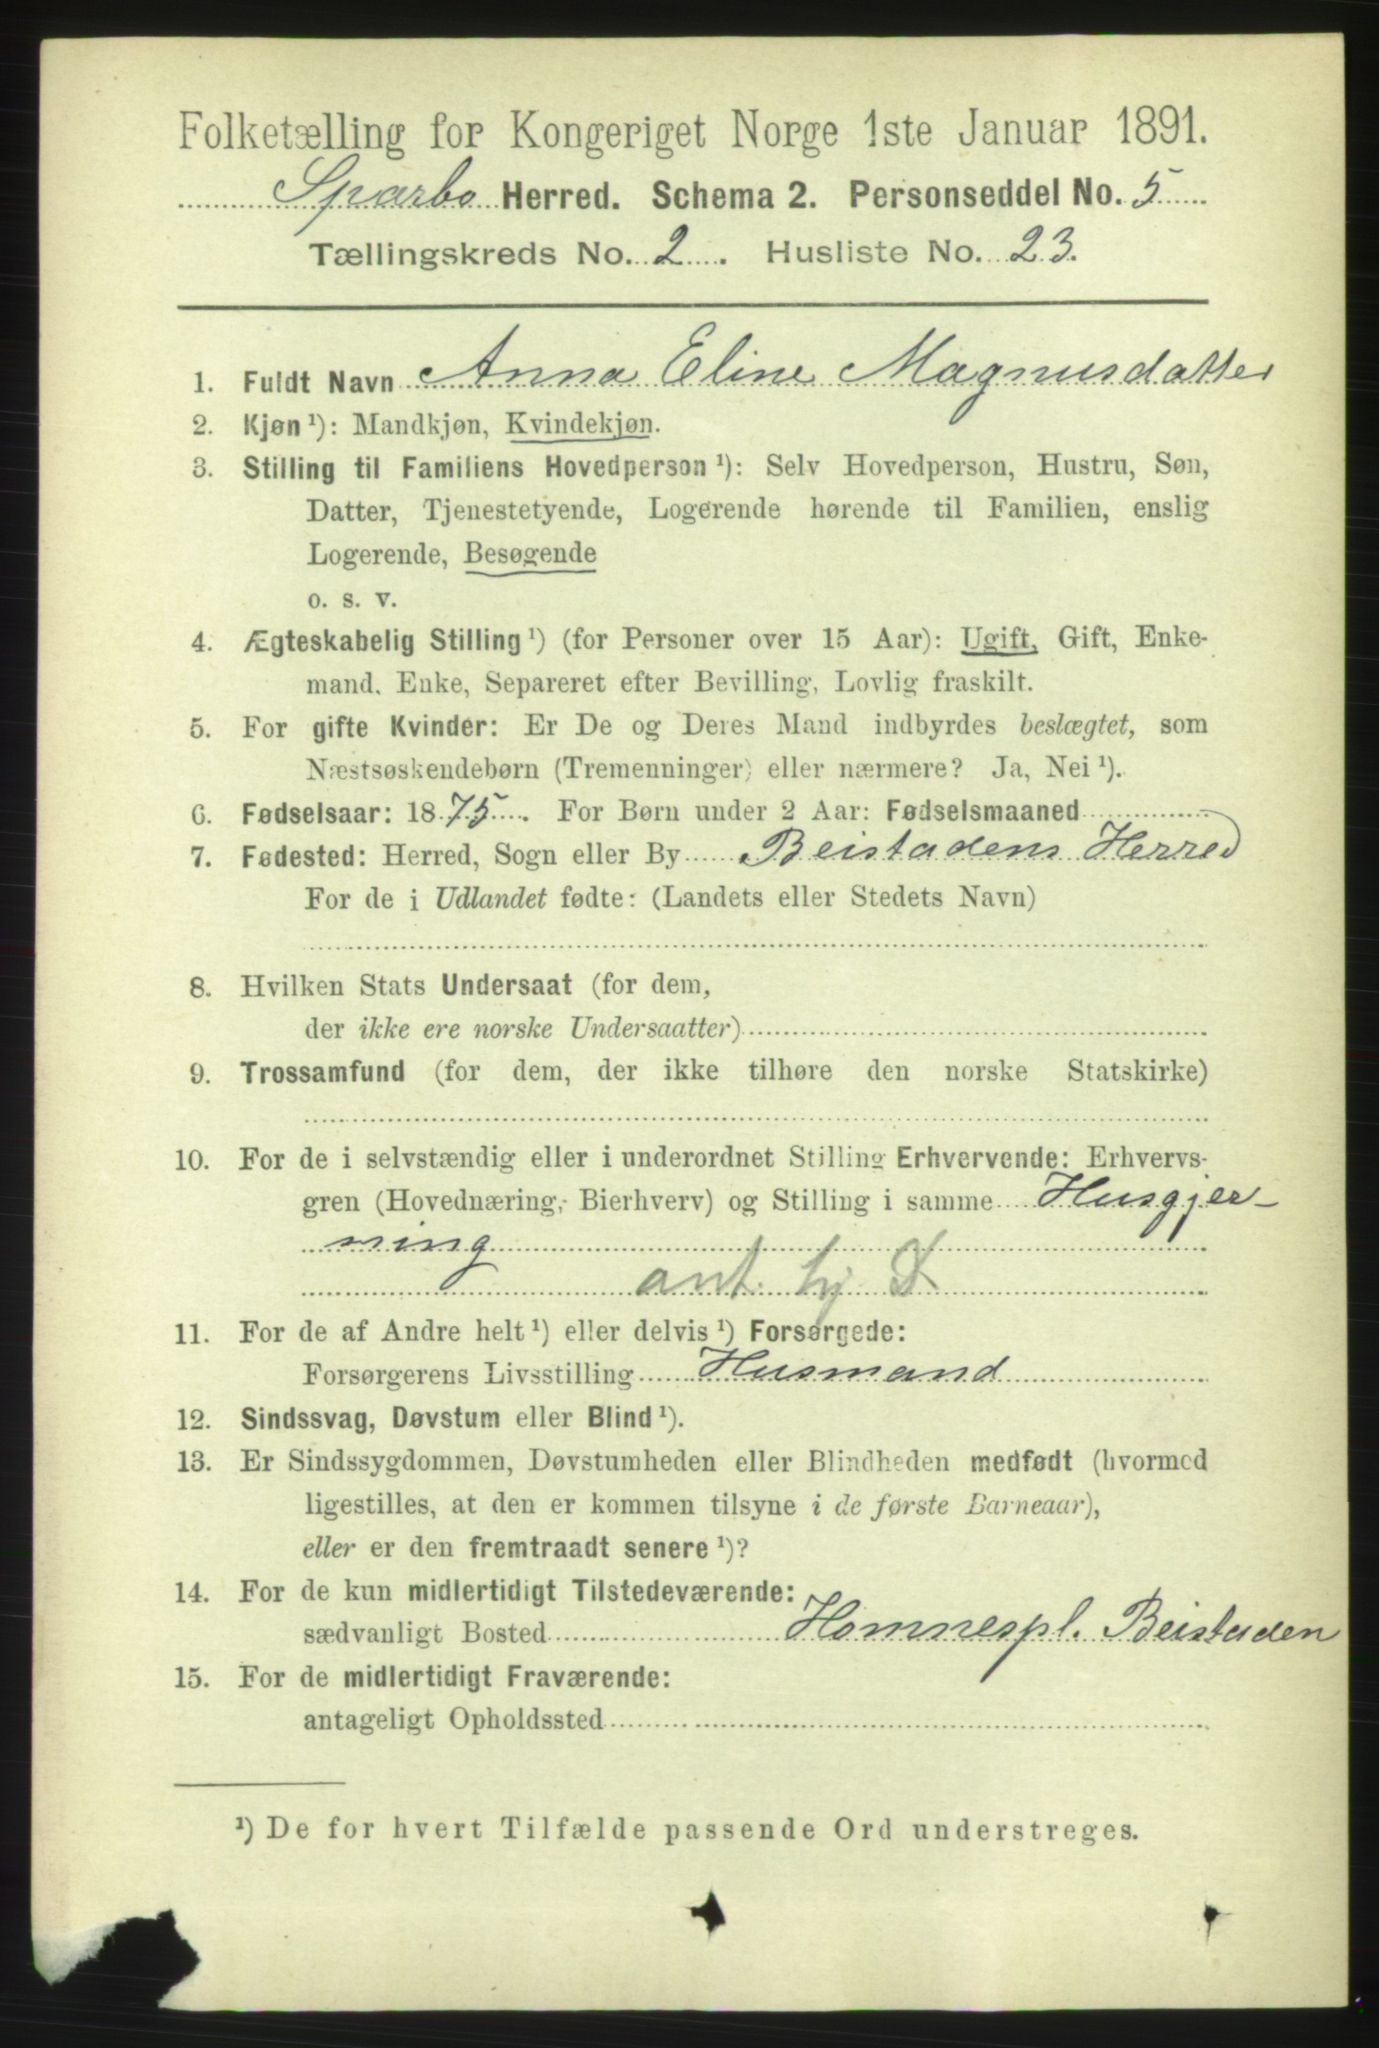 Folketælling for Kongeriget Norge 1ste Januar 1891.
Sparbo Herred. Schema 2. Personseddel No. 5
Tællingskreds No. 2. Husliste No. 23.
1. Fuldt Navn Anna Eline Magnusdatter
2. Kjøn¹): Mandkjøn, Kvindekjøn.
3. Stilling til Familiens Hovedperson¹): Selv Hovedperson, Hustru, Søn,
Datter, Tjenestetyende, Logerende hørende til Familien, enslig
Logerende, Besøgende
o. s. v.
4. Ægteskabelig Stilling¹) (for Personer over 15 Aar): Ugift, Gift, Enke-
mand, Enke, Separeret efter Bevilling, Lovlig fraskilt.
5. For gifte Kvinder: Er De og Deres Mand indbyrdes beslægtet, som
Næstsøskendebørn (Tremenninger) eller nærmere? Ja, Nei¹).
6. Fødselsaar: 1875. For Børn under 2 Aar: Fødselsmaaned
7. Fødested: Herred, Sogn eller By Beistadens Herred
For de i Udlandet fødte: (Landets eller Stedets Navn)
8. Hvilken Stats Undersaat (for dem,
der ikke ere norske Undersaatter)
9. Trossamfund (for dem, der ikke tilhøre den norske Statskirke)
10. For de i selvstændig eller i underordnet Stilling Erhvervende: Erhvervs-
gren (Hovednæring, Bierhverv) og Stilling i samme Husgjer-
ning
ant. hj
11. For de af Andre helt¹) eller delvis¹) Forsørgede:
Forsørgerens Livsstilling Husmand
12. Sindssvag, Døvstum eller Blind¹).
13. Er Sindssygdommen, Døvstumheden eller Blindheden medfødt (hvormed
ligestilles, at den er kommen tilsyne i de første Barneaar),
eller er den fremtraadt senere¹)?
14. For de kun midlertidigt Tilstedeværende:
sædvanligt Bosted Homnespl. Beistaden
15. For de midlertidigt Fraværende:
antageligt Opholdssted
¹) De for hvert Tilfælde passende Ord understreges.